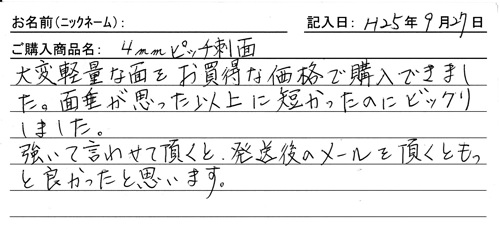 お名前(ニックネーム): 記入日: H25年9月27日
ご購入商品名: 4mmピッチ刺面
大変軽量な面をお買得な価格で購入できまし
た。面垂が思った以上に短かったのにビックリ
しました。
強いて言わせて頂くと、発送後のメールを頂くともっ
と良かったと思います。